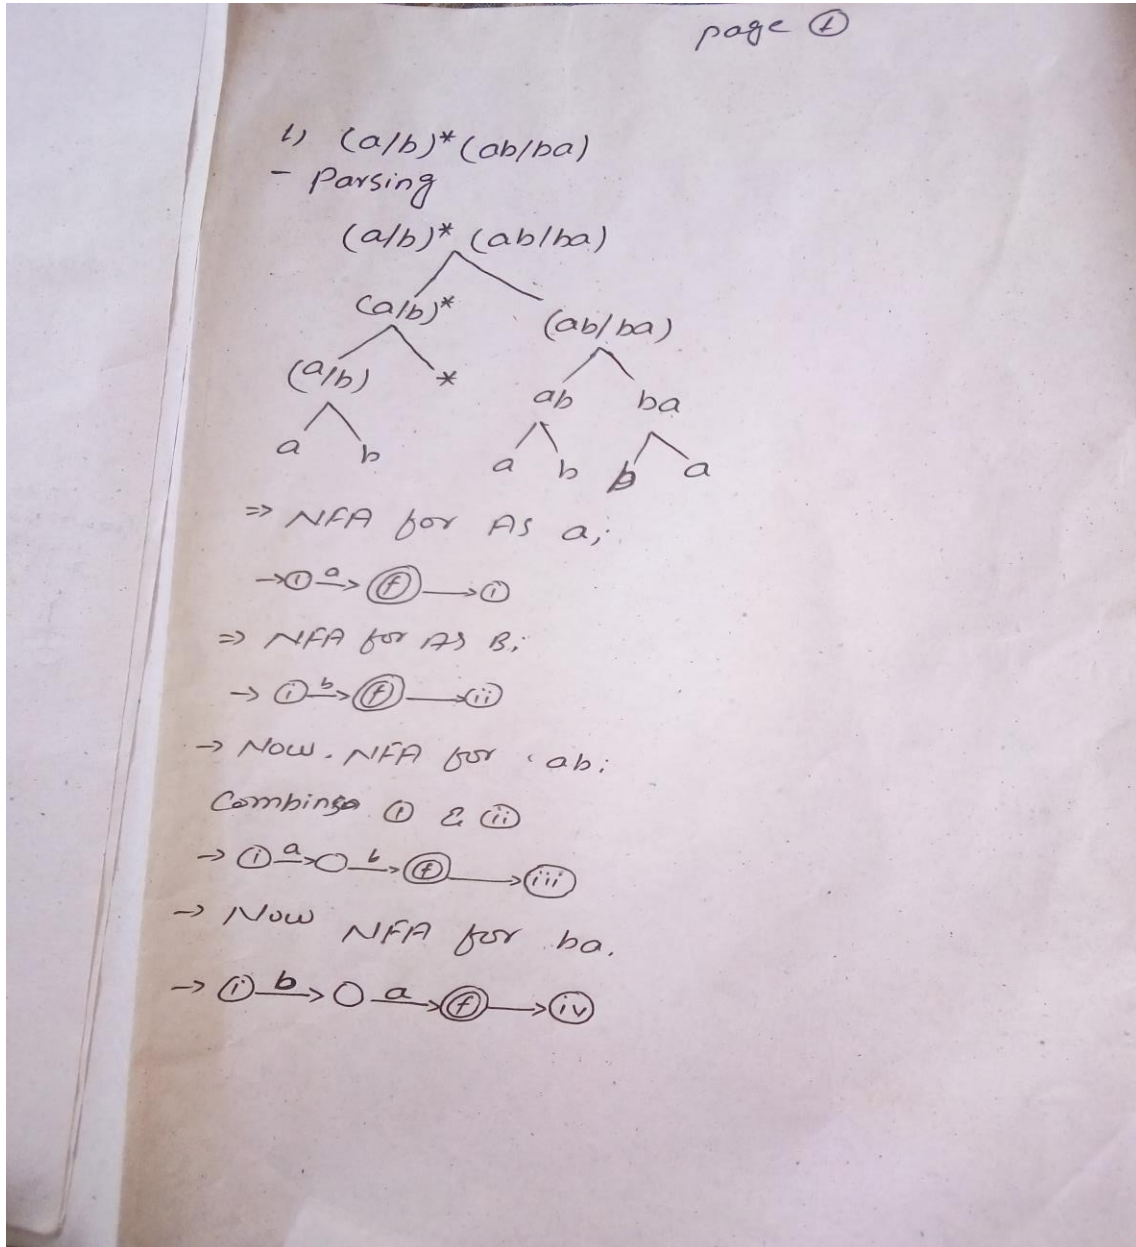 page ①
1) (a/b)* (ab/ba)
- Parsing
(a/b)* (ab/ba)
(a/b)* (ab/ba)
(a/b) * ab ba
a b a b b a
=> NFA for As a;
→ⓘ a→ ⓕ → ⓘ
=> NFA for As B;
→ ⓘ b→ ⓕ → (ii)
→ Now. NFA for ab;
Combinso ① & (ii)
→ ⓘ a→ ○ b→ ⓕ → (iii)
→ Now NFA for ba.
→ ⓘ b→ ○ a→ ⓕ → (iv)